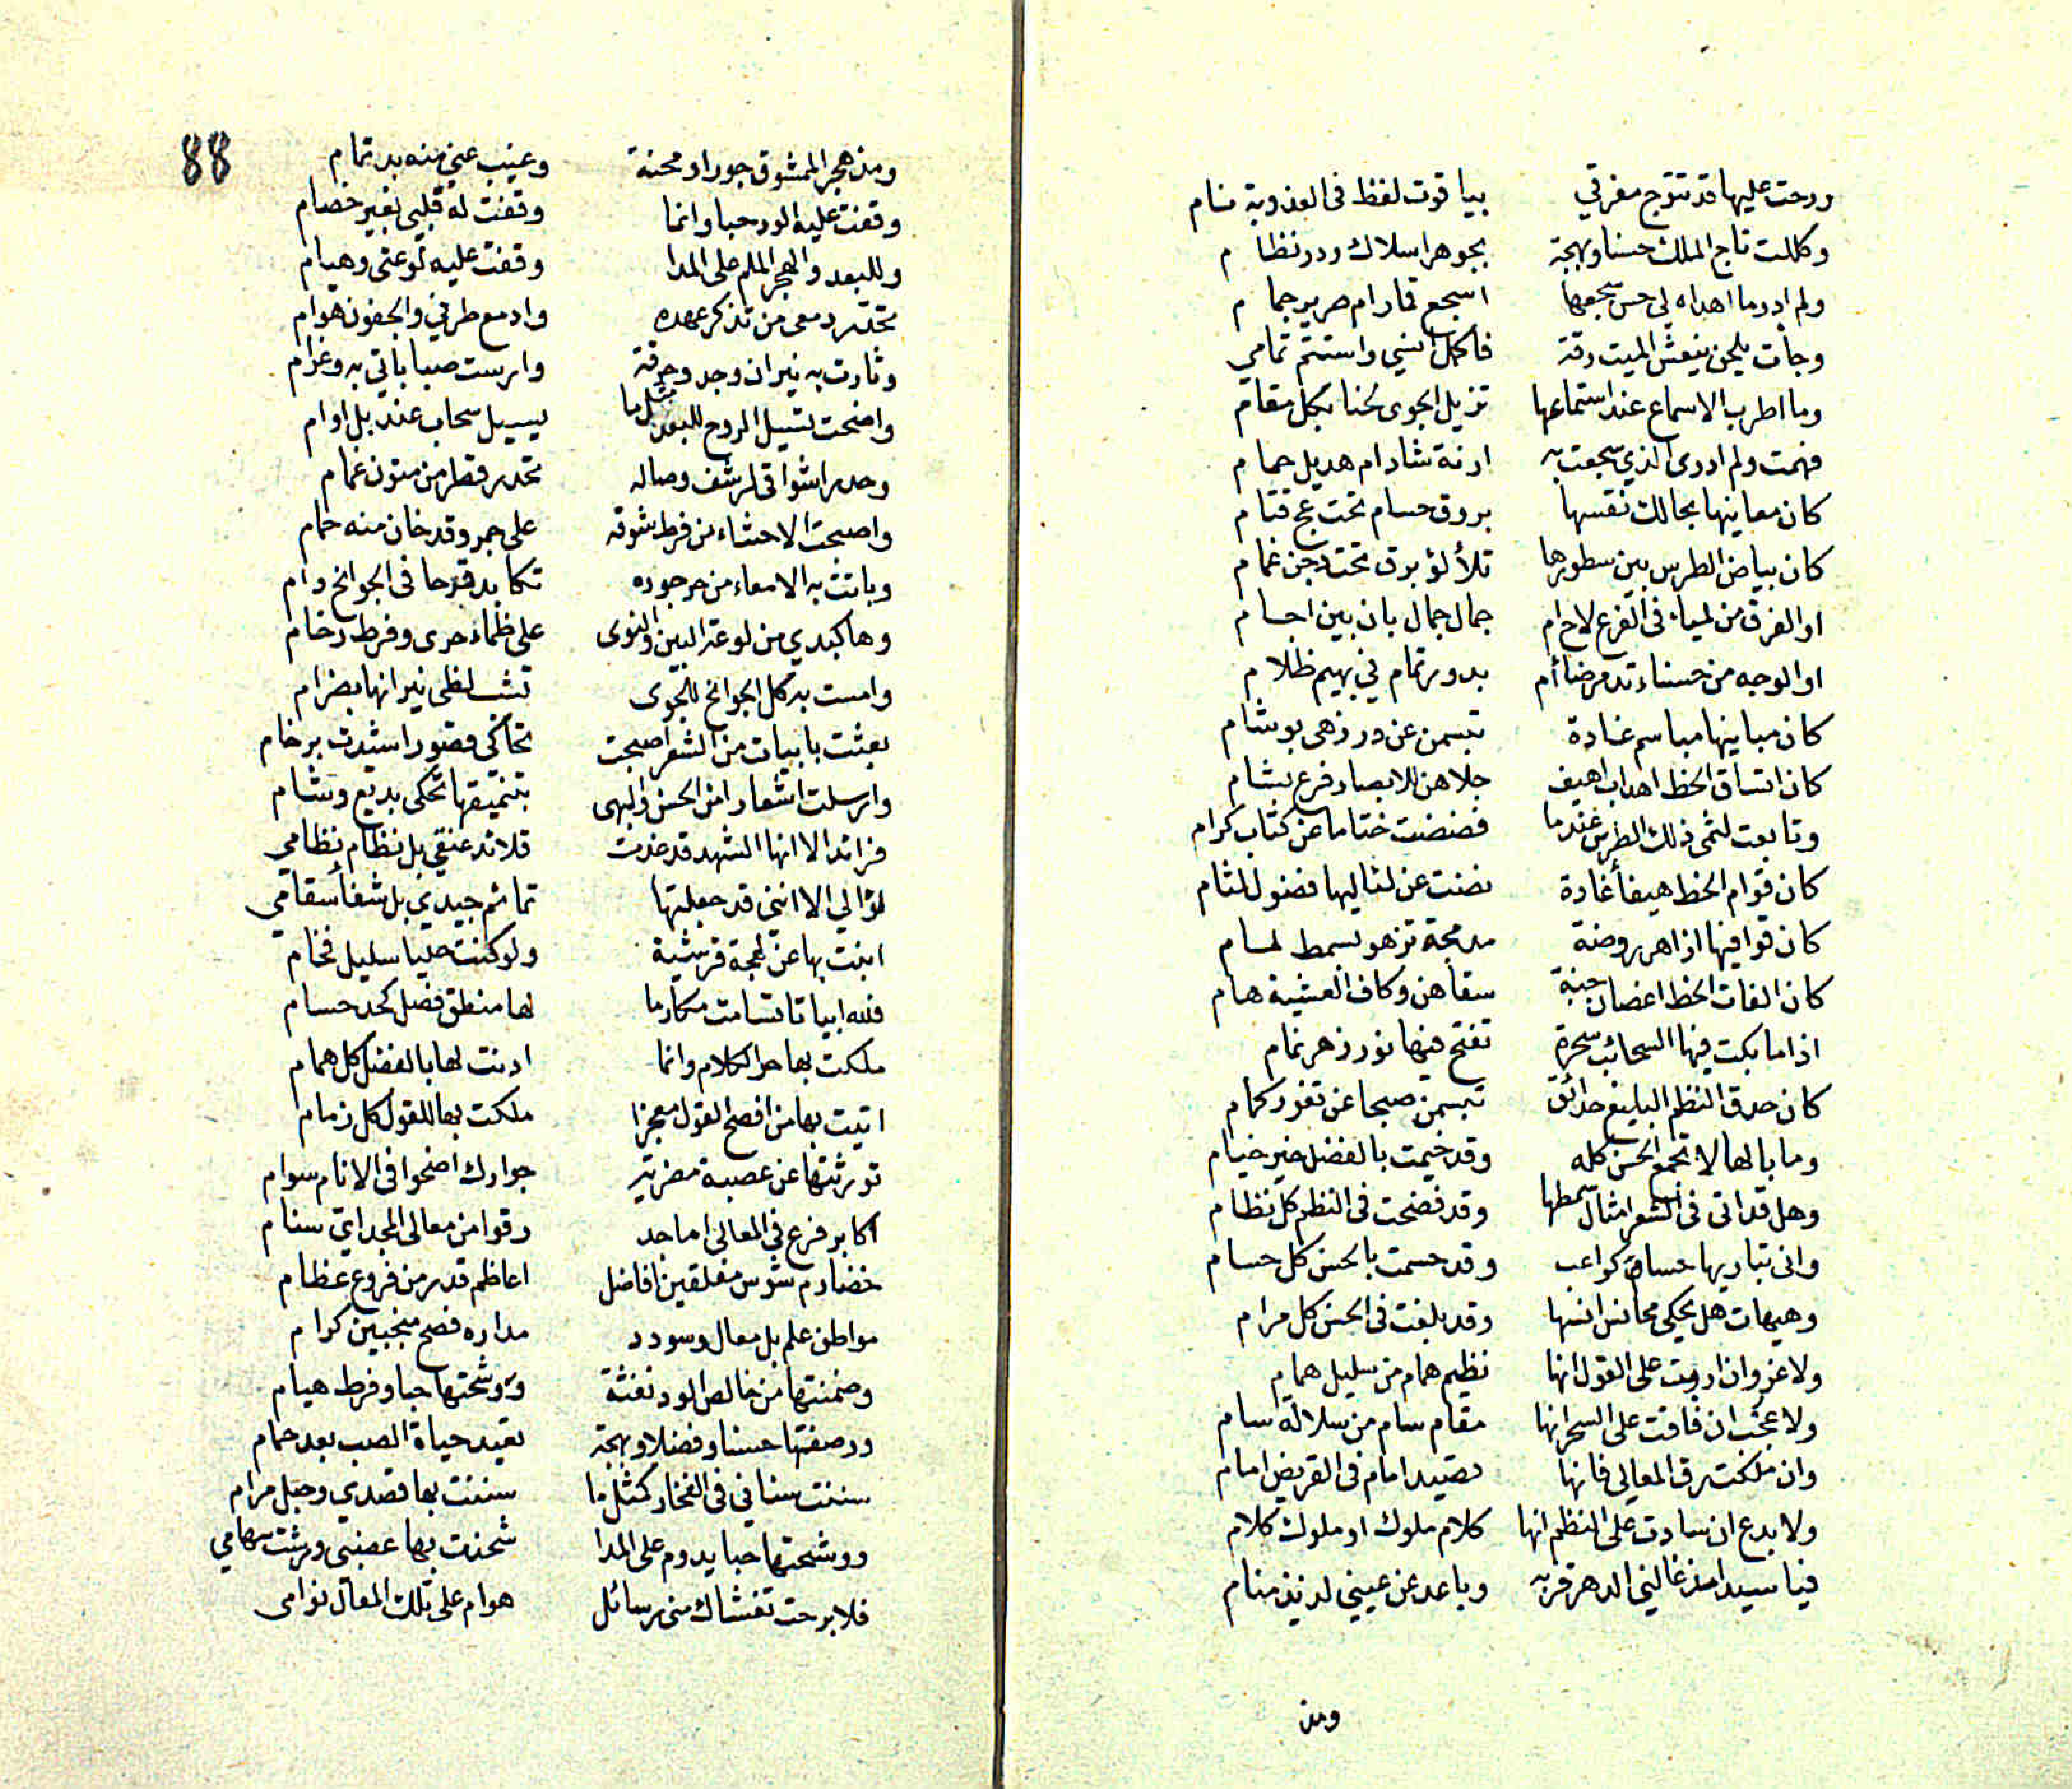 ورحت عليها قد تتوج مفرقي بياقوت لفظ فى العذوبة سام
وكللت تاج الملك حسنا وبهجة بجوهر اسلاك ودر نظام
ولم ادر ما اهداه لي حسن سجعها اسجع قمار ام صرير جمام
وجأت بلحن ينعش الميت رقة فاكمل انسي واستتم تمامي
وما اطرب الاسماع عند استماعها تزيل الجوى لحنا بكل مقام
فهمت ولم ادرى الذي سجعت به ارنة شاد ام هديل حمام
كان معانيها بحالك نقسها بروق حسام تحت عج قتام
كان بياض الطرس بين سطورها تلألؤ برق تحت دجن غمام
او الفرق من لمياء فى الفرع لاح ام جمال جمال بان بين اجسام
او الوجه من حسناء تدمرضا أم بدور تمام في بهيم ظلام
كان مبانيها مباسم غادة تبسمن عن در زهى بوشام
كان اتساق الخط اهداب اهيف جلاهن للابصار فرع بشام
وتابعت لثمى ذلك الطرس عندما فضضت ختاما عن كتاب كرام
كان قوام الخط هيفأ غادة نضت عن لئاليها فضول لثام
كان قوافيها ازاهر روضة مدبجة تزهو بسمط لسام
كان الفات الخط اغصان جنة سقاهن وكاف العشية هام
اذا ما بكت فيها السحائب سحرة تفتح فيها نور زهر نمام
كان حدق النظم البليغ حدائق تبسمن صبحا عن ثغور كمام
وما بالها لا تجمع الحسن كله وقد خيمت بالفضل خير خيام
وهل قد اتى فى الشعر امثال سمطها وقد فضحت فى النظم كل نظام
وانى تباريها حسان كواعب وقد حسمت بالحسن كل حسام
وهيهات هل يحكى محانس انسها وقد بلغت فى الحسن كل مرام
ولا غرو ان اربت على القول انها نظيم همام من سليل همام
ولا عجب ان فاقت على السحر انها مقام سام من سلالة سام
وان ملكت رق المعالى فانها نصيد امام فى القريض امام
ولا بدع ان سادت على النظم انها كلام ملوك او ملوك كلام
فيا سيدا مذ غالني الدهر قربه وباعد عن عيني لذيذ منام
ومن
88
ومذ هجر الممشوق جورا ومحنة وغيب عني منه بدر تمام
وقفت عليه الود حبا وانما وقفت له قلبي بغير خصام
وللبعد والهجر الملم على المدا وقفت عليه لوعتى وهيام
تحدر دمعى من تذكر عهده وادمع طرفي والجفون هوام
وثارت به نيران وجد وحرقة وارست صباباتي به وغرام
واضحت تسيل الروح للبعد مثل ما يسيل سحاب عند بل اوام
وحدر اشواقى لرشف وصاله تحدر قطر من متون غمام
واصبحت الاحشاء من فرط شوقه على جمر وقد خان منه حمام
وباتت به الامعاء من حر جوره تكابد قرحا فى الجوانح دام
وها كبدي من لوعة البين والنوى على ظماء حرى وفرط رخام
وامست به كل الجوانح للجوى تشب لظى نيرانها بضرام
بعثت بابيات من الشعر اصبحت تحاكى قصورا شيدت برخام
وارسلت اشعارا من الحسن والبهى بتنميقها تحكى بديع وشام
فرائد الا انها الشهد قد غذت قلائد عنقي بل نظام نظامي
لؤالي الا انني قد جعلتها تمائم جيدي بل شفأ سقامي
ابنت بها عن لهجة قرشية ولو كنت حليا سليل فخام
فلله ابياتا تسامت مكارما لها منطق فصل كحد حسام
ملكت بها حر الكلام وانما ادنت لها بالفضل كل همام
اتيت بها من افصح القول معجزا ملكت بها للقول كل زمام
تورثتها عن عصبة مضرية جوارك اضحوا فى الانام سوام
اكابر فرع في المعالى اماجد رقوا من معالى المجد اي سنام
خضارم شوس مفلقين افاضل اعاظم قدر من فروع عظام
مواطن علم بل معال وسودد مداره فصح منجبين كرام
وضمنتها من خالص الود نفثة ووشحتها حبا وفرط هيام
ورصفتها حسنا وفضلا وبهجة تعيد حياة الصب بعد حمام
سننت سناني فى الفخار كمثل ما سننت بها قصدي وحبل مرام
ووشحتها حبا يدوم على المدا شحذت بها عضبى ورشت سهامي
فلا برحت تغشاك منى رسائل هوام على تلك المعال نوامى